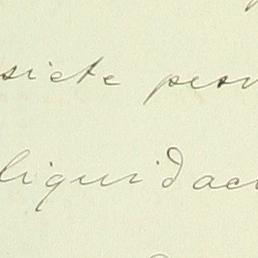 siete pes
liquidac